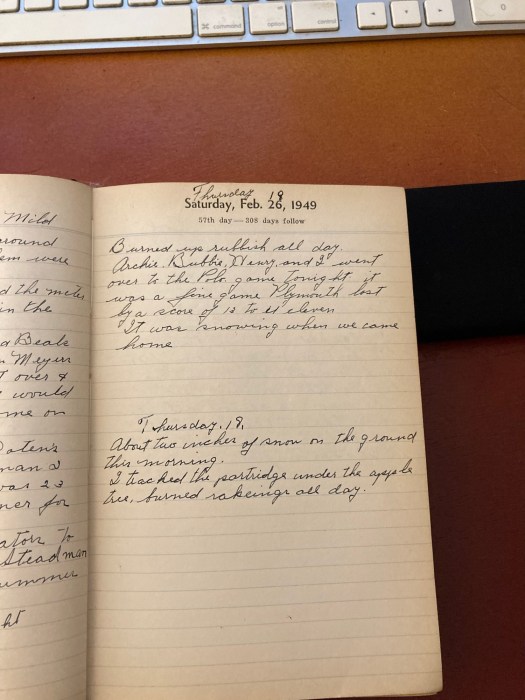 command
option
control
0
Mild
round
em were
d the meter
in the
a Beals
n Meyers
t over &
would
me on
Daten's
man 2
was 23
ner for
ators to
Steadman
ummer
ht
Thursday 19
Saturday, Feb. 26, 1949
57th day—308 days follow
Burned up rubbish all day.
Archie, Bubbie, Henry, and I went
over to the Polo game tonight it
was a fine game Plymouth lost
by a score of 12 to 11 eleven
It was snowing when we came
home
Thursday. 19.
About two inches of snow on the ground
this morning.
I tracked the partridge under the apple
tree, burned rakeings all day.